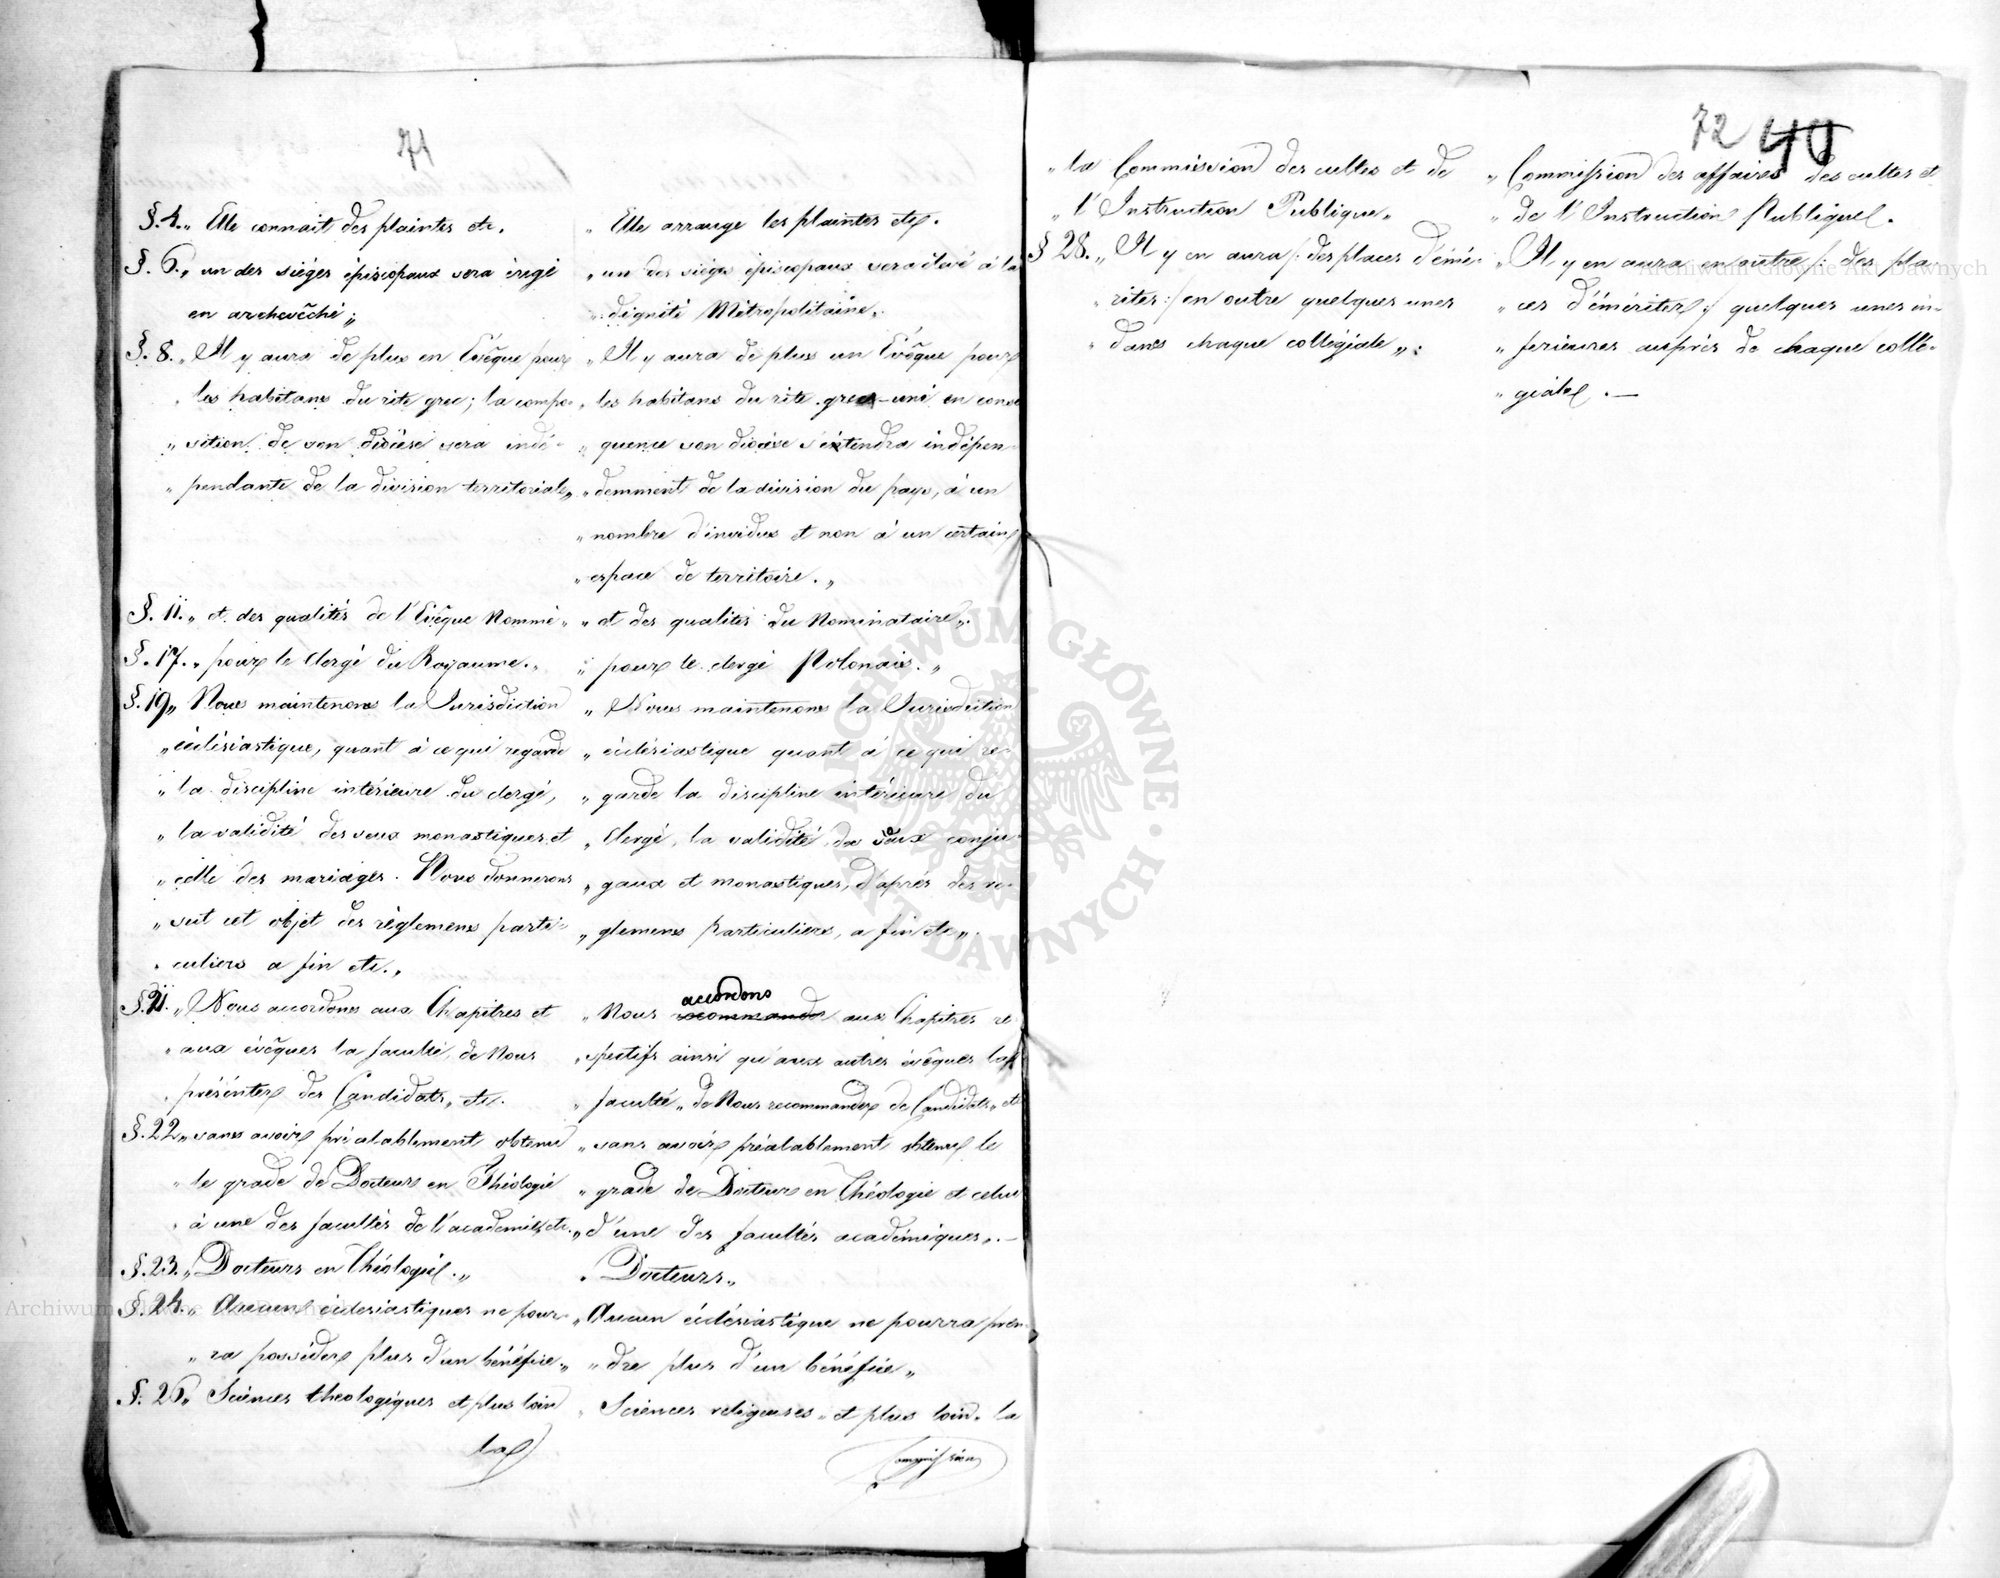 71
§.4. „ Elle connait des plaintes etc.
§. 6. „ un des siéges épiscopaux sera érigé
en archevêché „
§. 8. „ Il y aura de plus en Evêque pour
„ les habitans du rite grec; la compo-
„ sition de son diocèse sera indé-
„ pendante de la division territoriale „
§. 11. „ et des qualités de l'Evêque Nommé „
§. 17. „ pour le Clergé du Royaume. „
§. 19 „ Nous maintenons la Jurisdiction
„ écclésiastique, quant à ce qui regarde
„ la discipline intérieure du clergé,
„ la validité des veux monastiques et
„ celle des mariages. Nous donnerons
„ sut cet objet des règlemens parti-
„ culiers a fin etc. „
§. 21. „ Nous accordons aux Chapitres et
„ aux évêques la faculté de Nous
„ présenter des Candidats „ etc.
§. 22 „ sans avoir préalablement obtenu
„ le grade de Docteur en Théologie
„ à une des facultés de l'academie, etc.
§. 23. „ Docteurs en Théologie. „
§. 24. „ Aucun écclesiastiques ne pour-
„ ra posséder plus d'un bénéfice „
§. 26 „ Sciences theologiques et plus loin
la
„ Elle arrange les plaintes etc.
„ un des siéges épiscopaux sera élevé à la
„ dignité Métropolitaine „
„ Il y aura de plus un Evêque pour
„ les habitans du rite grec-uni en conse
„ quence son diocèse s'éxtendra indépen-
„ demment de la division du pays, à un
„ nombre d'invidus et non à un certain
„ espace de territoire. „
„ et des qualités du Nominataire „
„ pour le clergé Polonais. „
„ Nous maintenons la Jurisdiction
„ écclésiastique quant à ce qui re-
„ garde la discipline intérieure du
„ Clergé, la validité de vœux conju-
„ gaux et monastiques, d'après des re-
„ glemens particuliers, a fin etc „
accordons
„ Nous recommander aux Chapitres re
„ spectifs ainsi qu'aux autres évêques la
„ faculté „ de Nous recommander de Candidats „ etc
„ sans avoir préalablement obtenu le
„ grade de Docteur en Théologie et celui
„ d'une des facultés académiques „. —
„ Docteurs „
„ Aucun écclésiastique ne pourra pren-
„ dre plus d'un bénéfice „
„ Sciences religeuses „ et plus loin „ la
Commission
72 40
„ la Commission des cultes et de
„ l'Instruction Publique „
§ 28. „ Il y en aura /: des places d'émé-
„ rites :/ en outre quelques unes
„ dans chaque collégiale „.
„ Commission des affaires des cultes et
„ de l'Instruction Publique.
„ Il y en aura en outre /: des pla-
„ ces d'émérites :/ quelques unes in-
„ ferieures auprès de chaque collé-
„ giale. —
ARCHIWUM GŁÓWNE AKT DAWNYCH
Archiwum Główne Akt Dawnych